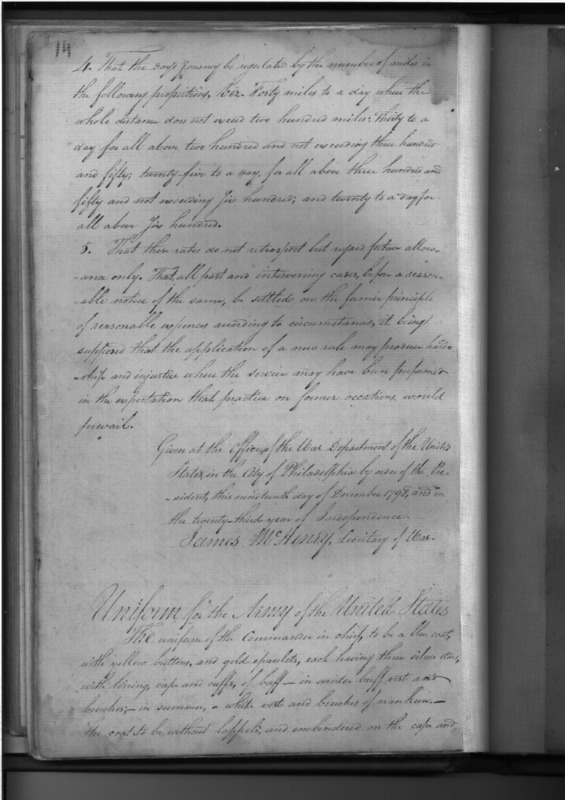 14
4. That the days journey be regulated by the number of miles in
the following proportions, viz. Forty miles to a day where the
whole distance does not exceed two hundred miles: Thirty to a
day for all above two hundred and not exceeding three hundred
and fifty; twenty five to a day, for all above three hundred and
fifty and not exceeding Six hundred; and twenty to a day for
all above Six hundred.
5. That these rates do not retrospect but regard future allow-
-ance only. That all past and intervening cases, before a reason-
-able notice of the same, be settled on the former principle
of reasonable expences according to circumstances, it being
supposed that the application of a new rule may produce hard-
-ship and injustice where the service may have been performed
in the expectation that practice on former occasions, would
prevail.
Given at the Office of the War Department of the United
States, in the City of Philadelphia by order of the Pre-
-sident, this nineteenth day of December 1798, and in
the twenty-third year of Independence.
James McHenry, Secretary of War.
Uniform for the Army of the United States
The uniform of the Commander in chief, to be a blue coat,
with yellow buttons, and gold epaulets, each having three silver stars,
with lining, cape and cuffs, of buff — in winter buff vest and
breeches; — in summer, a white vest and breeches of nankeen. —
The coat to be without lappels, and embroidered on the cape and